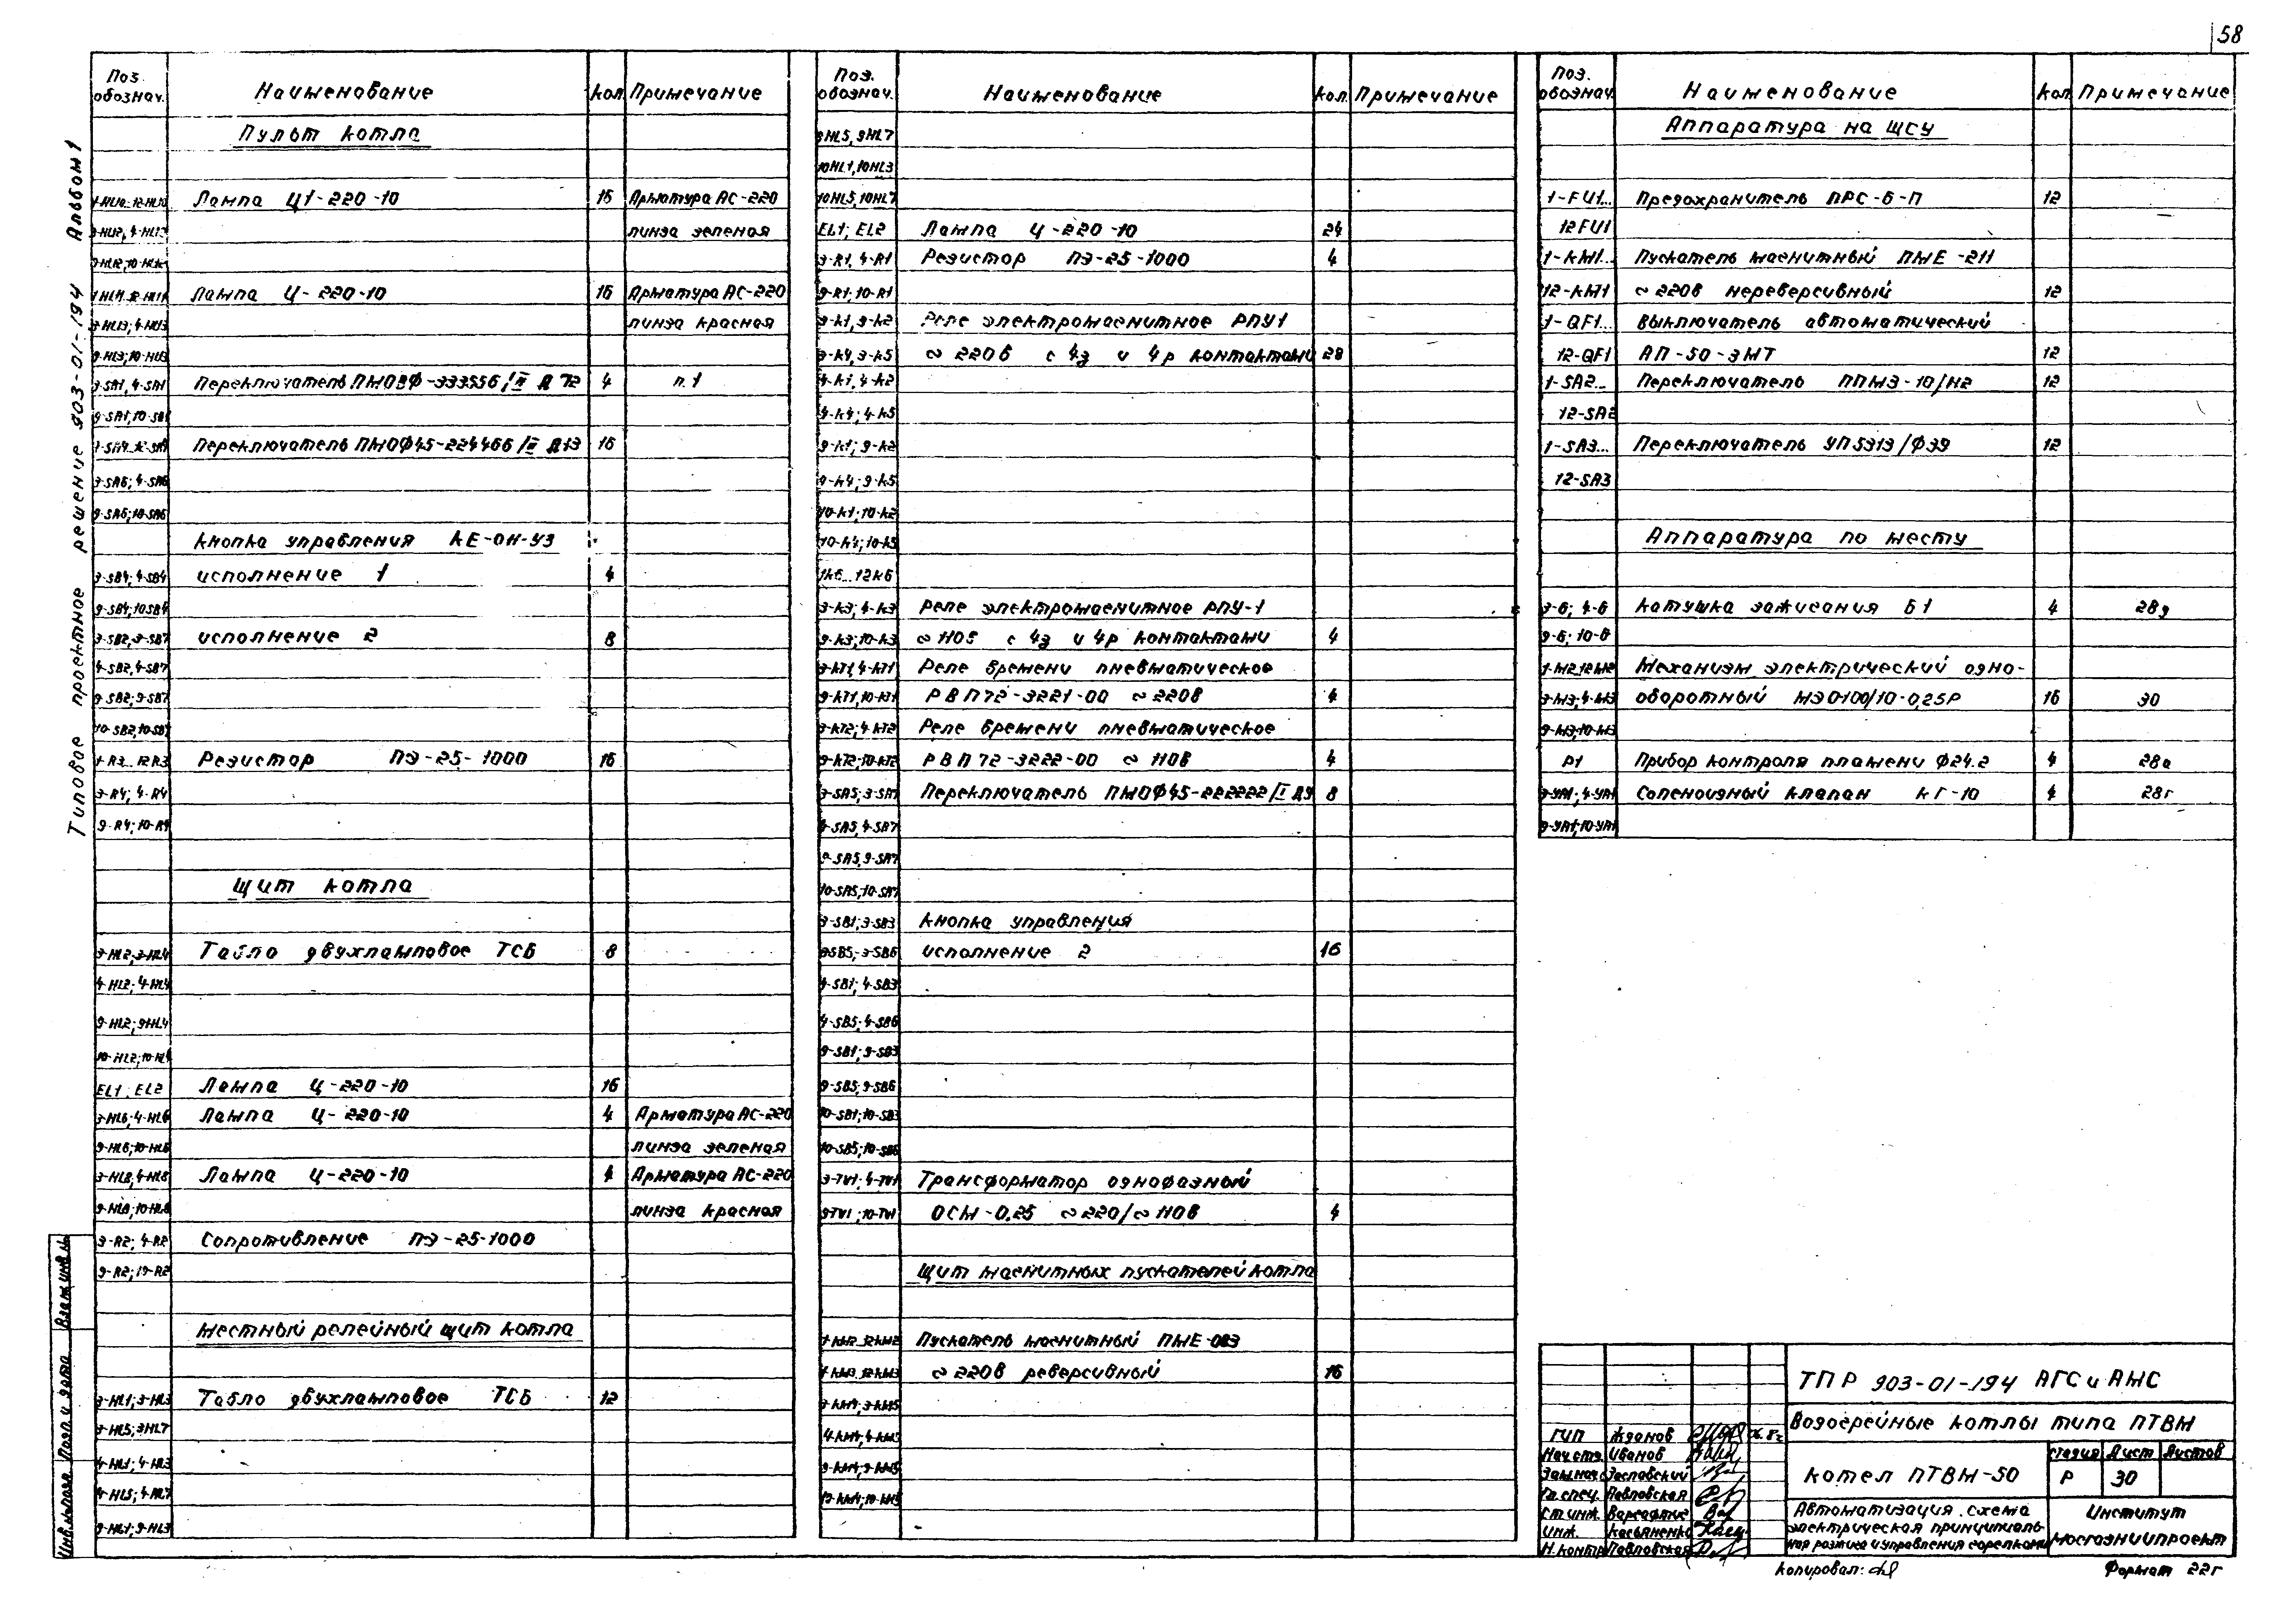 58
Альбом 1
Типовое проектное решение 903-01-194
Поз. обознач. Наименование Кол. Примечание
Пульт котла
1-HL10...12-HL10 Лампа Ц1-220-10 16 Арматура АС-220
3-HL12, 4-HL12 линза зеленая
9-HL12, 10-HL12
Лампа Ц-220-10 16 Арматура АС-220
3-HL13; 4-HL13 линза красная
9-HL13; 10-HL13
3-SA1, 4-SA1 Переключатель ПМОВФ-333556/II Д 72 4 п.1
9-SA1; 10-SA1
Переключатель ПМОФ45-224466/II Д13 16
3-SA6; 4-SA6
9-SA6; 10-SA6
Кнопка управления КЕ-ОН-У3
3-SB4; 4-SB4 исполнение 1 4
9-SB4; 10SB4
3-SB2, 3-SB7 исполнение 2 8
4-SB2, 4-SB7
9-SB2; 9-SB7
10-SB2, 10-SB7
1-R3...12R3 Резистор ПЭ-25-1000 16
3-R4; 4-R4
9-R4; 10-R4
Щит котла
3-HL2; 3-HL4 Табло двухламповое ТСБ 8
4-HL2; 4-HL4
9-HL2; 9HL4
10-HL2; 10-HL4
EL1; EL2 Лампа Ц-220-10 16
3-HL6; 4-HL6 Лампа Ц-220-10 4 Арматура АС-220
9-HL6; 10-HL6 линза зеленая
3-HL8; 4-HL8 Лампа Ц-220-10 4 Арматура АС-220
9-HL8; 10-HL8 линза красная
3-R2; 4-R2 Сопротивление ПЭ-25-1000
9-R2; 10-R2
Местный релейный щит котла
3-HL1; 3-HL3 Табло двухламповое ТСБ 12
3-HL5; 3HL7
4-HL1; 4-HL3
4-HL5; 4-HL7
9-HL1; 9-HL3
Поз. обознач. Наименование Кол. Примечание
9HL5, 9HL7
10HL1, 10HL3
10HL5, 10HL7
EL1; EL2 Лампа Ц-220-10 24
3-R1, 4-R1 Резистор ПЭ-25-1000 4
9-R1; 10-R1
3-К1, 3-К2 Реле электромагнитное РПУ1
3-К4, 3-К5 ~ 220в с 4з и 4р контактами 28
4-К1, 4-К2
4-К4; 4-К5
9-К1; 9-К2
9-К4; 9-К5
10-К1; 10-К2
10-К4; 10-К5
1К6...12К6
3-К3; 4-К3 Реле электромагнитное РПУ-1
9-К3; 10-К3 ~ 110в с 4з и 4р контактами 4
3-КТ1, 4-КТ1 Реле времени пневматическое
9-КТ1, 10-КТ1 РВП72-3221-00 ~ 220в 4
3-КТ2; 4-КТ2 Реле времени пневматическое
9-КТ2; 10-КТ2 РВП72-3222-00 ~ 110в 4
3-SA5; 3-SA7 Переключатель ПМОФ45-222222/I Д9 8
4-SA5, 4-SA7
9-SA5, 9-SA7
10-SA5; 10-SA7
3-SB1; 3-SB3 Кнопка управления
3-SB5; 3-SB6 исполнение 2 16
4-SB1; 4-SB3
4-SB5; 4-SB6
9-SB1; 9-SB3
9-SB5; 9-SB6
10-SB1; 10-SB3
10-SB5; 10-SB6
3-TV1; 4-TV1 Трансформатор однофазный
9-TV1; 10-TV1 ОСМ-0,25 ~ 220/~ 110в 4
Щит магнитных пускателей котла
1-КМ2...12КМ2 Пускатель магнитный ПМЕ-083
1-КМ3...12КМ3 ~ 220в реверсивный 16
3-КМ4; 3-КМ5
4-КМ4, 4-КМ5
9-КМ4; 9-КМ5
10-КМ4; 10-КМ5
Поз. обознач. Наименование Кол Примечание
Аппаратура на ЩСУ
1-FU1... Предохранитель ПРС-6-П 12
12FU1
1-КМ1... Пускатель магнитный ПМЕ-211
12-КМ1 ~ 220в нереверсивный 12
1-QF1... Выключатель автоматический
12-QF1 АП-50-3МТ 12
1-SA2... Переключатель ППМ3-10/Н2 12
12-SA2
1-SA3... Переключатель УП5313/Ф39 12
12-SA3
Аппаратура по месту
3-б; 4-б Катушка зажигания Б1 4 28д
9-б; 10-б
1-М2...12М2 Механизм электрический одно-
3-М3; 4-М3 оборотный МЭО100/10-0,25Р 16 30
9-М3; 10-М3
Р1 Прибор контроля пламени Ф24.2 4 28а
3-YA1; 4-YA1 Соленоидный клапан КГ-10 4 28г
9-YA1; 10-YA1
ТПР 903-01-194 АГСиАМС
Водогрейные котлы типа ПТВМ
Котел ПТВМ-50
Стадия Лист Листов
Р 30
Автоматизация. Схема
электрическая принципиаль-
ная розжига и управления горелками
Институт
Мосгазниипроект
ГИП Жданов
Нач.отд. Иванов
Зам.нач. Заславский
Гл.спец. Павловская
Ст.инж. Варгафтик
Инж. Касьяненко
Н.контр. Павловская
Копировал:
Формат 22г
Инв.№ подл. Подп. и дата Взам.инв.№